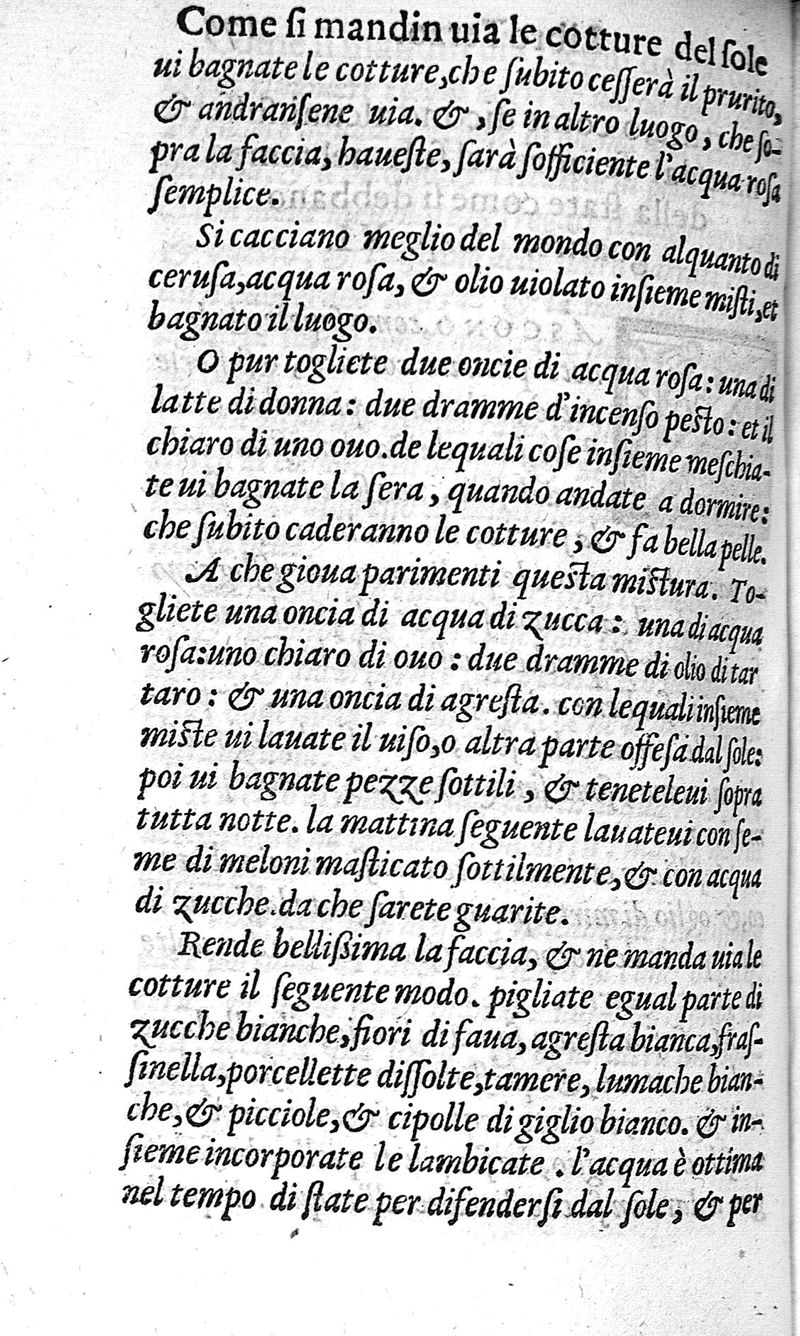 Come ſi mandin uia le cotture del ſole
ui bagnate le cotture, che ſubito ceſſerà il prurito,
& andranſene uia. &, ſe in altro luogo, che ſo-
pra la faccia, haueſte, ſarà ſofficiente l'acqua roſa
ſemplice.
Si cacciano meglio del mondo con alquanto di
ceruſa, acqua roſa, & olio uiolato inſieme miſti, et
bagnato il luogo.
O pur togliete due oncie di acqua roſa: una di
latte di donna: due dramme d'incenſo peſto: et il
chiaro di uno ouo. de lequali coſe inſieme meſchia-
te ui bagnate la ſera, quando andate a dormire:
che ſubito caderanno le cotture, & fa bella pelle.
A che gioua parimenti queſta miſtura. To-
gliete una oncia di acqua di zucca: una di acqua
roſa: uno chiaro di ouo: due dramme di olio di tar
taro: & una oncia di agreſta. con lequali inſieme
miſte ui lauate il uiſo, o altra parte offeſa dal ſole:
poi ui bagnate pezze ſottili, & teneteleui ſopra
tutta notte. la mattina ſeguente lauateui con ſe-
me di meloni maſticato ſottilmente, & con acqua
di zucche. da che ſarete guarite.
Rende belliſſima la faccia, & ne manda uia le
cotture il ſeguente modo. pigliate egual parte di
zucche bianche, fiori di faua, agreſta bianca, fraſ-
ſinella, porcellette diſſolte, tamere, lumache bian-
che, & picciole, & cipolle di giglio bianco. & in-
ſieme incorporate le lambicate. l'acqua è ottima
nel tempo di ſtate per difenderſi dal ſole, & per